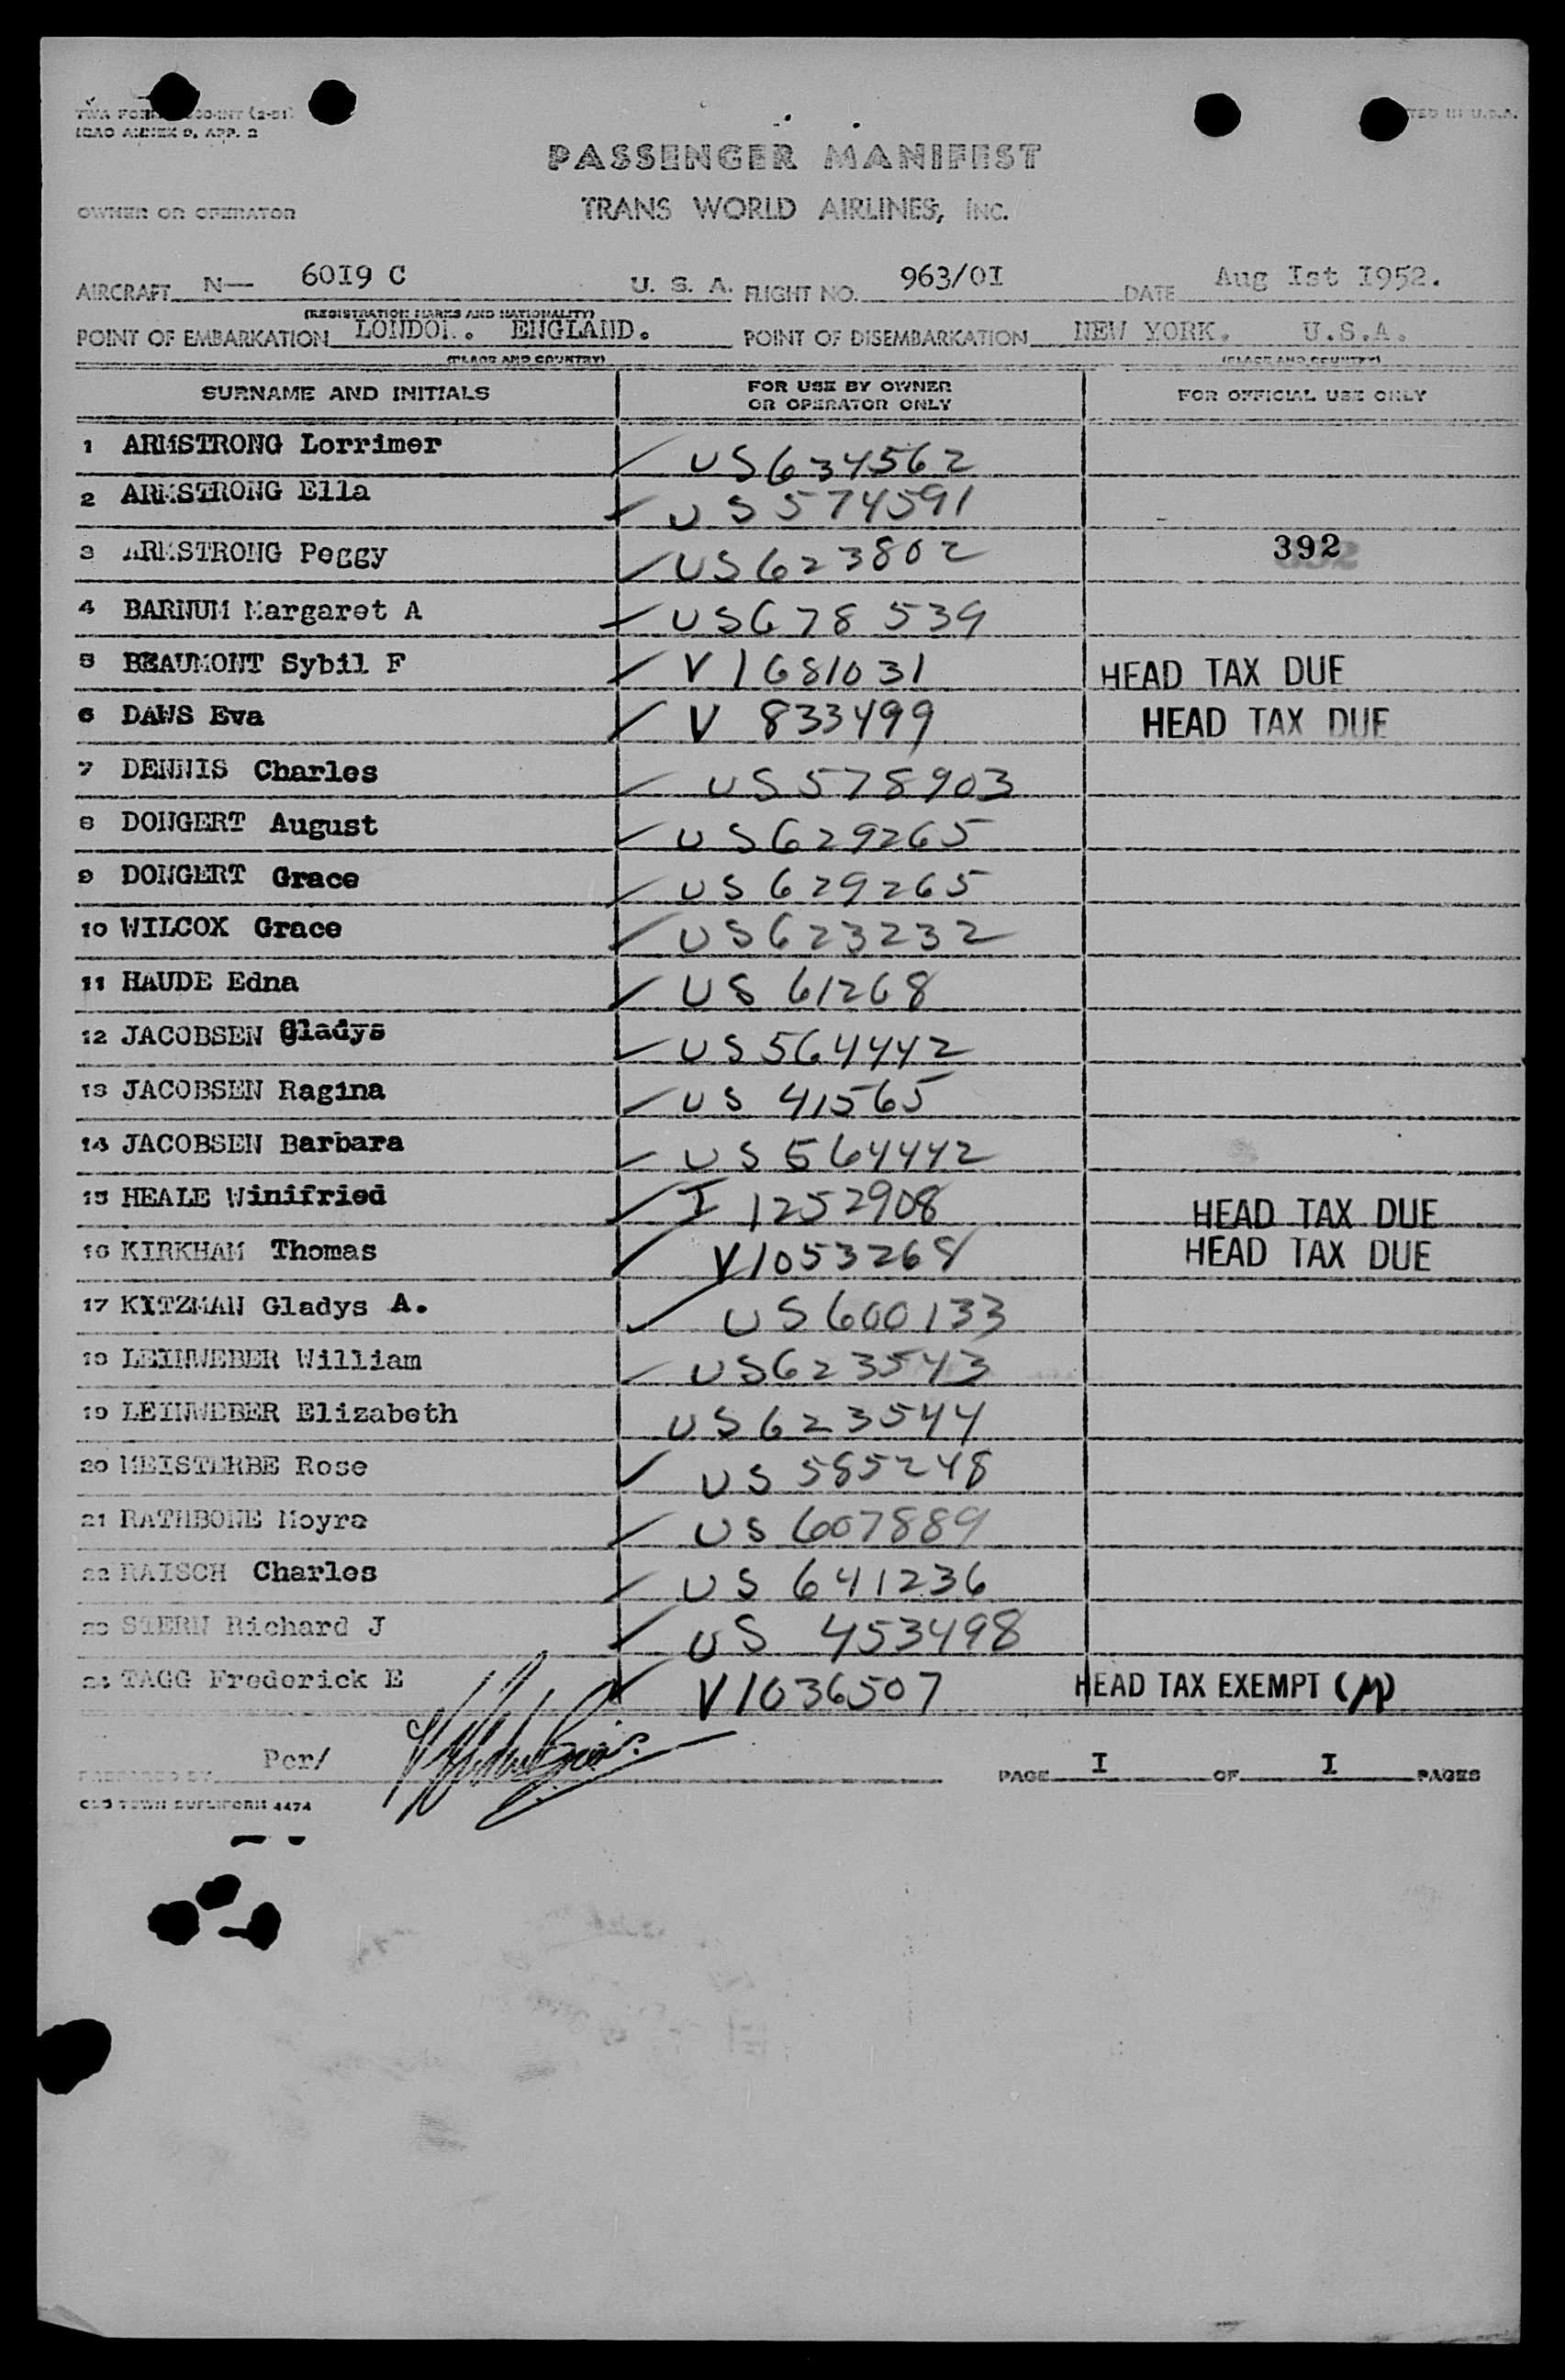 ICAO ANNEX 9, APP. 2
PASSENGER MANIFEST
OWNER OR OPERATOR TRANS WORLD AIRLINES, INC.
AIRCRAFT N— 6OI9 C U. S. A. FLIGHT NO. 963/OI DATE Aug Ist I952.
(REGISTRATION MARKS AND NATIONALITY)
POINT OF EMBARKATION LONDON. ENGLAND. POINT OF DISEMBARKATION NEW YORK. U.S.A.
(PLACE AND COUNTRY) (PLACE AND COUNTRY)
SURNAME AND INITIALS FOR USE BY OWNER OR OPERATOR ONLY FOR OFFICIAL USE ONLY
1 ARMSTRONG Lorrimer ✓ US634562
2 ARMSTRONG Ella ✓ US574591
3 ARMSTRONG Peggy ✓ US623802 392
4 BARNUM Margaret A ✓ US678539
5 BEAUMONT Sybil F ✓ V1681031 HEAD TAX DUE
6 DAWS Eva ✓ V 833499 HEAD TAX DUE
7 DENNIS Charles ✓ US578903
8 DONGERT August ✓ US629265
9 DONGERT Grace ✓ US629265
10 WILCOX Grace ✓ US623232
11 HAUDE Edna ✓ US 61268
12 JACOBSEN Gladys ✓ US564442
13 JACOBSEN Ragina ✓ US 41565
14 JACOBSEN Barbara ✓ US564442
15 HEALE Winifried ✓ I 1252908 HEAD TAX DUE
16 KIRKHAM Thomas ✓ V1053268 HEAD TAX DUE
17 KITZMAN Gladys A. ✓ US600133
18 LEINWEBER William ✓ US623543
19 LEINWEBER Elizabeth US623544
20 MEISTERBE Rose ✓ US 585248
21 RATHBONE Moyra ✓ US 607889
22 RAISCH Charles ✓ US 641236
23 STERN Richard J ✓ US 453498
24 TAGG Frederick E ✓ V1036507 HEAD TAX EXEMPT (M)
PREPARED BY Per/ PAGE I OF I PAGES